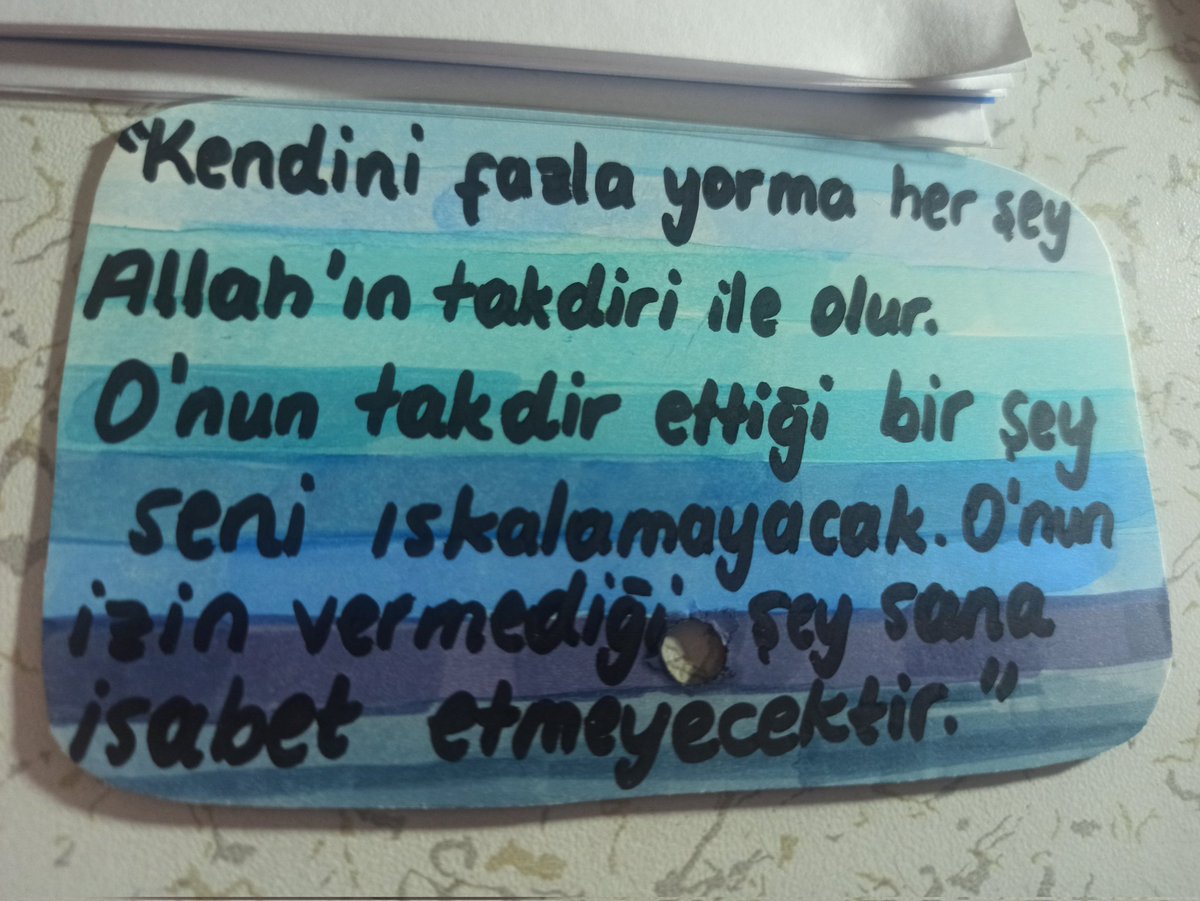 "Kendini fazla yorma her şey
Allah'ın takdiri ile olur.
O'nun takdir ettiği bir şey
seni ıskalamayacak. O'nun
izin vermediği şey sana
isabet etmeyecektir."